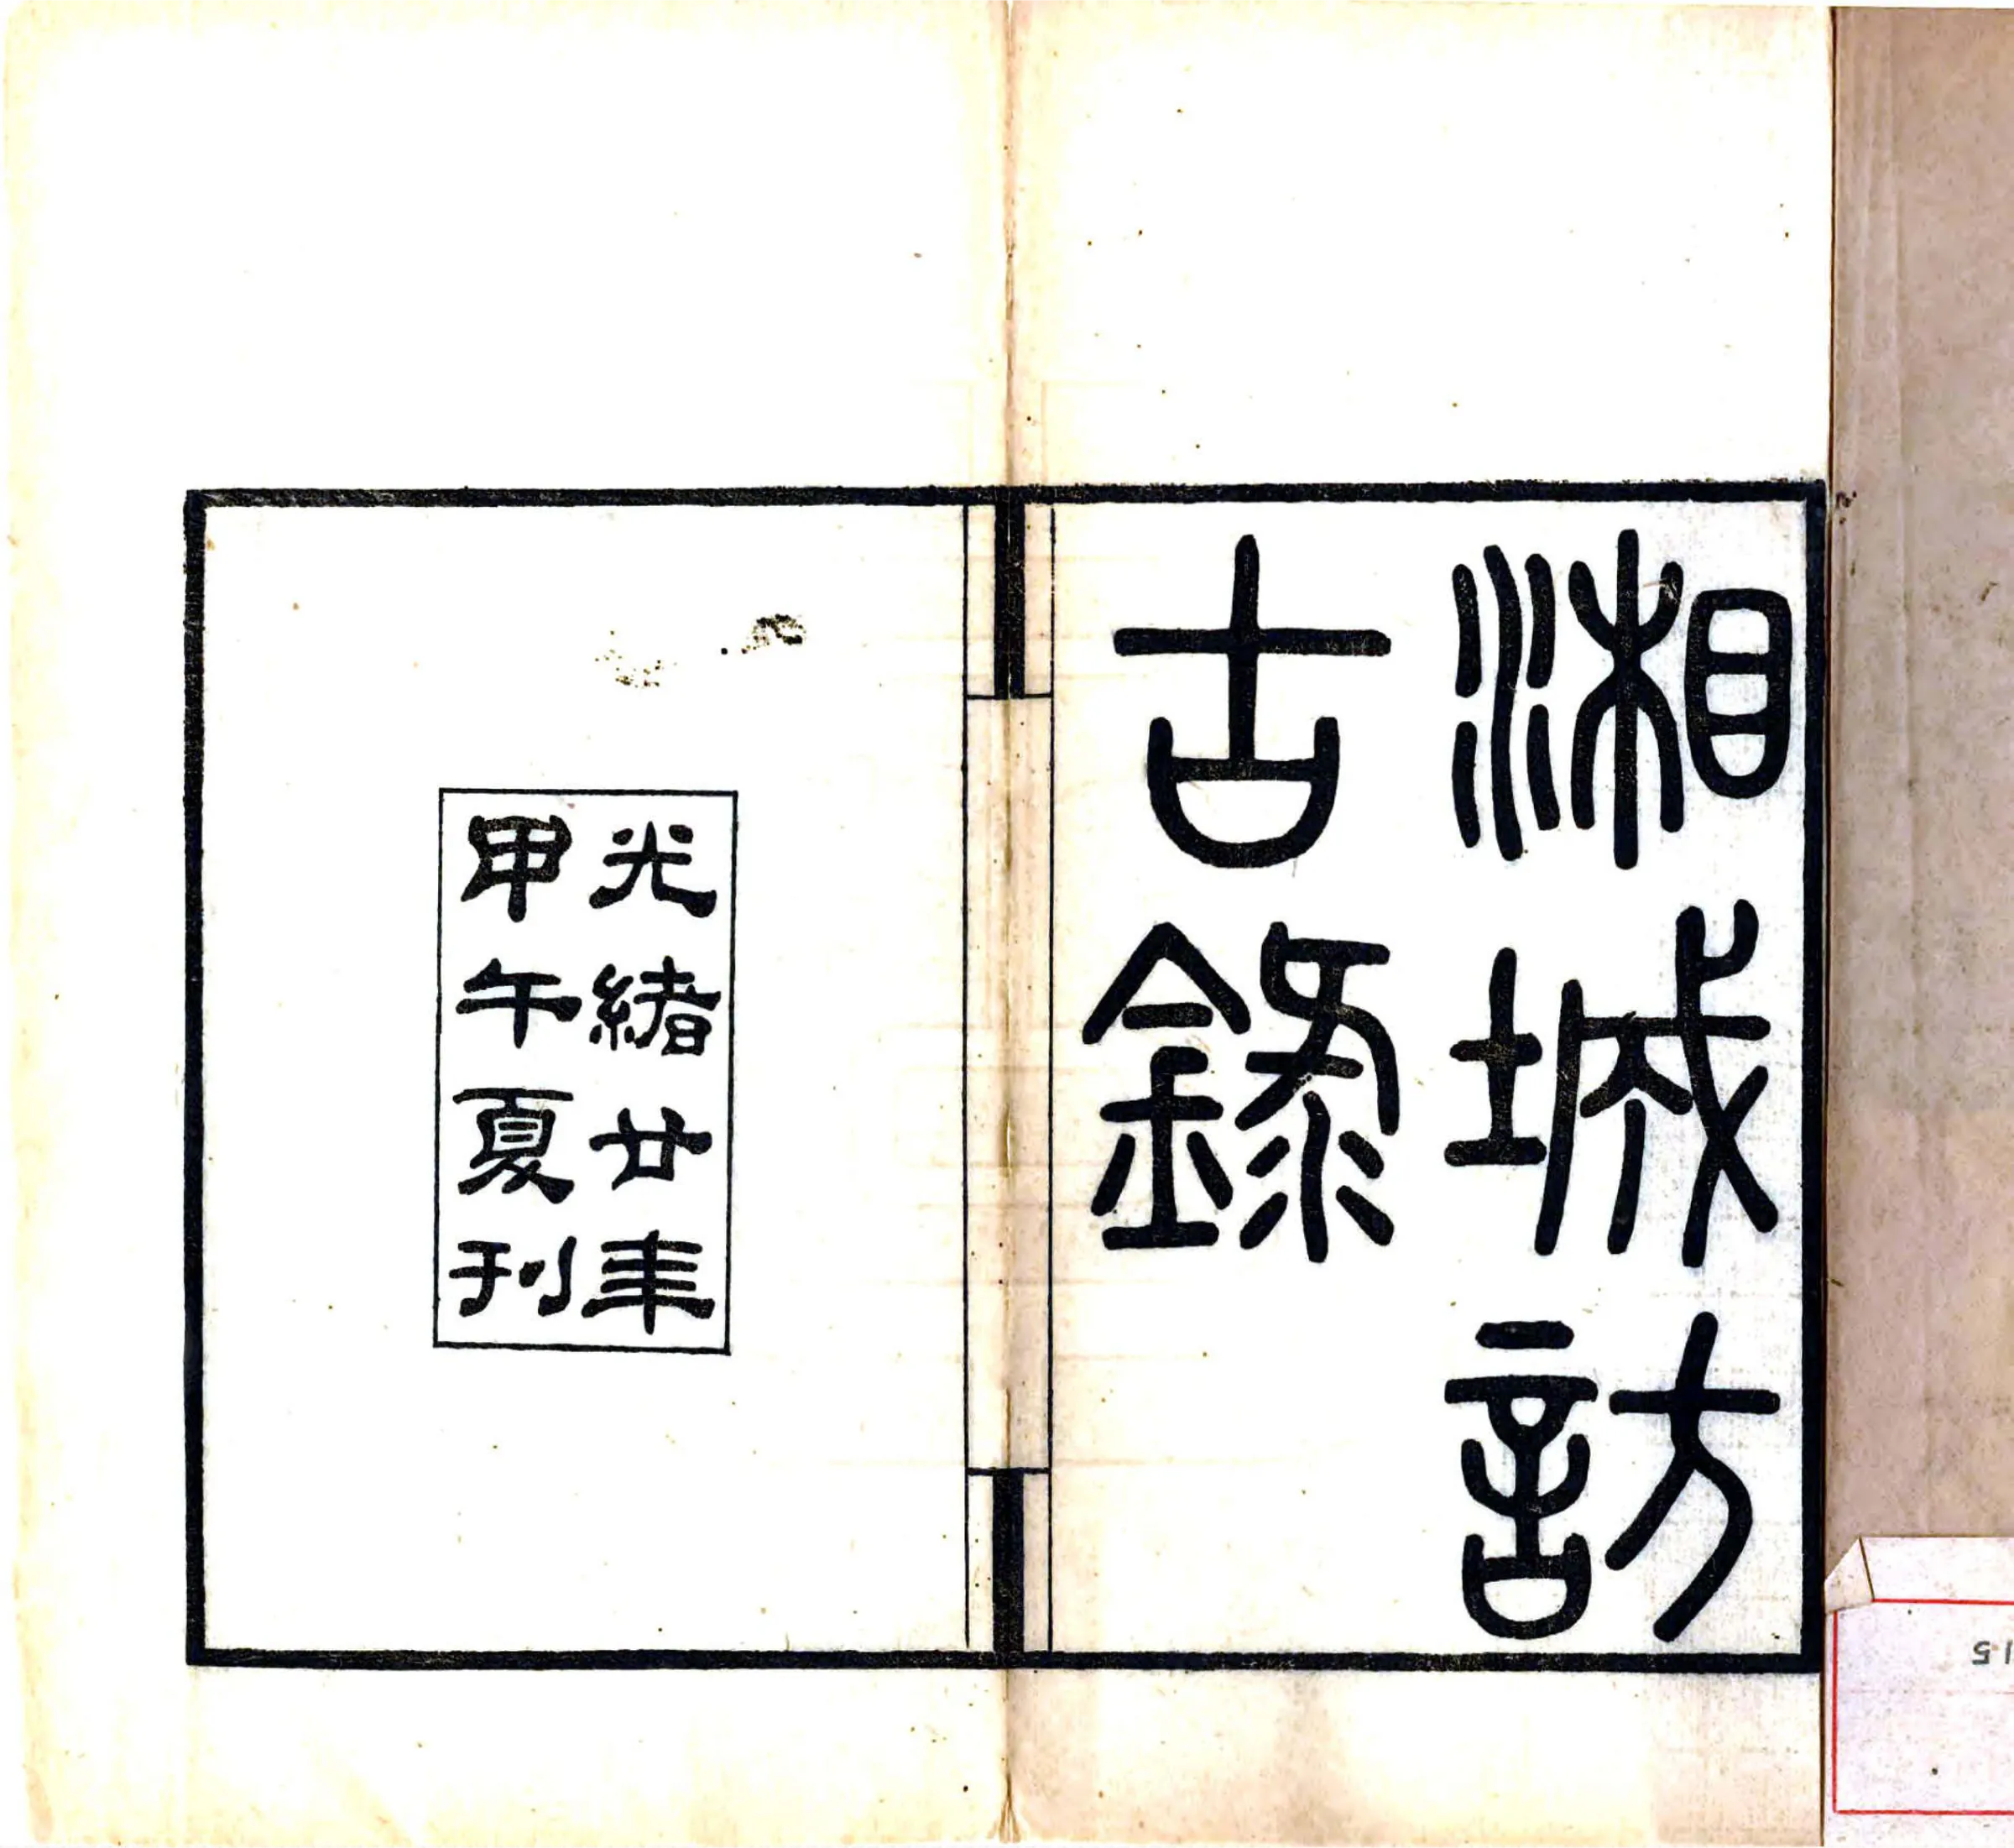 湘城訪
古錄
光緒廿年
甲午夏刊
15